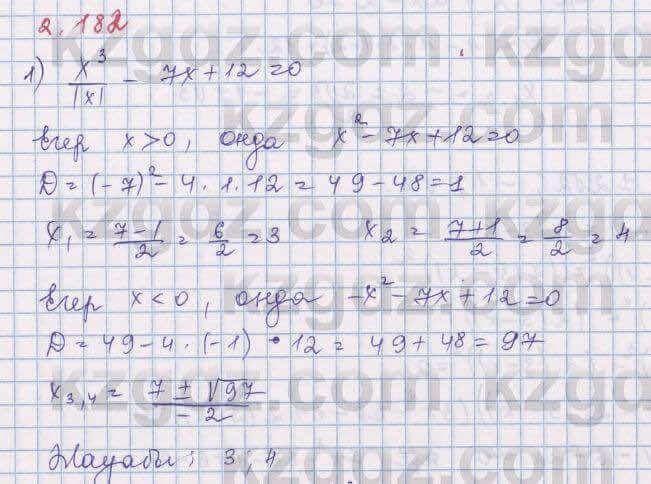 2.182
1) x³/|x| - 7x+12=0
егер x>0, онда x²-7x+12=0
D=(-7)²-4·1·12=49-48=1
x₁=(7-1)/2=6/2=3 x₂=(7+1)/2=8/2=4
егер x<0, онда -x²-7x+12=0
D=49-4·(-1)·12=49+48=97
x₃,₄=(7±√97)/-2
Жауабы: 3; 4
kzgoz.com